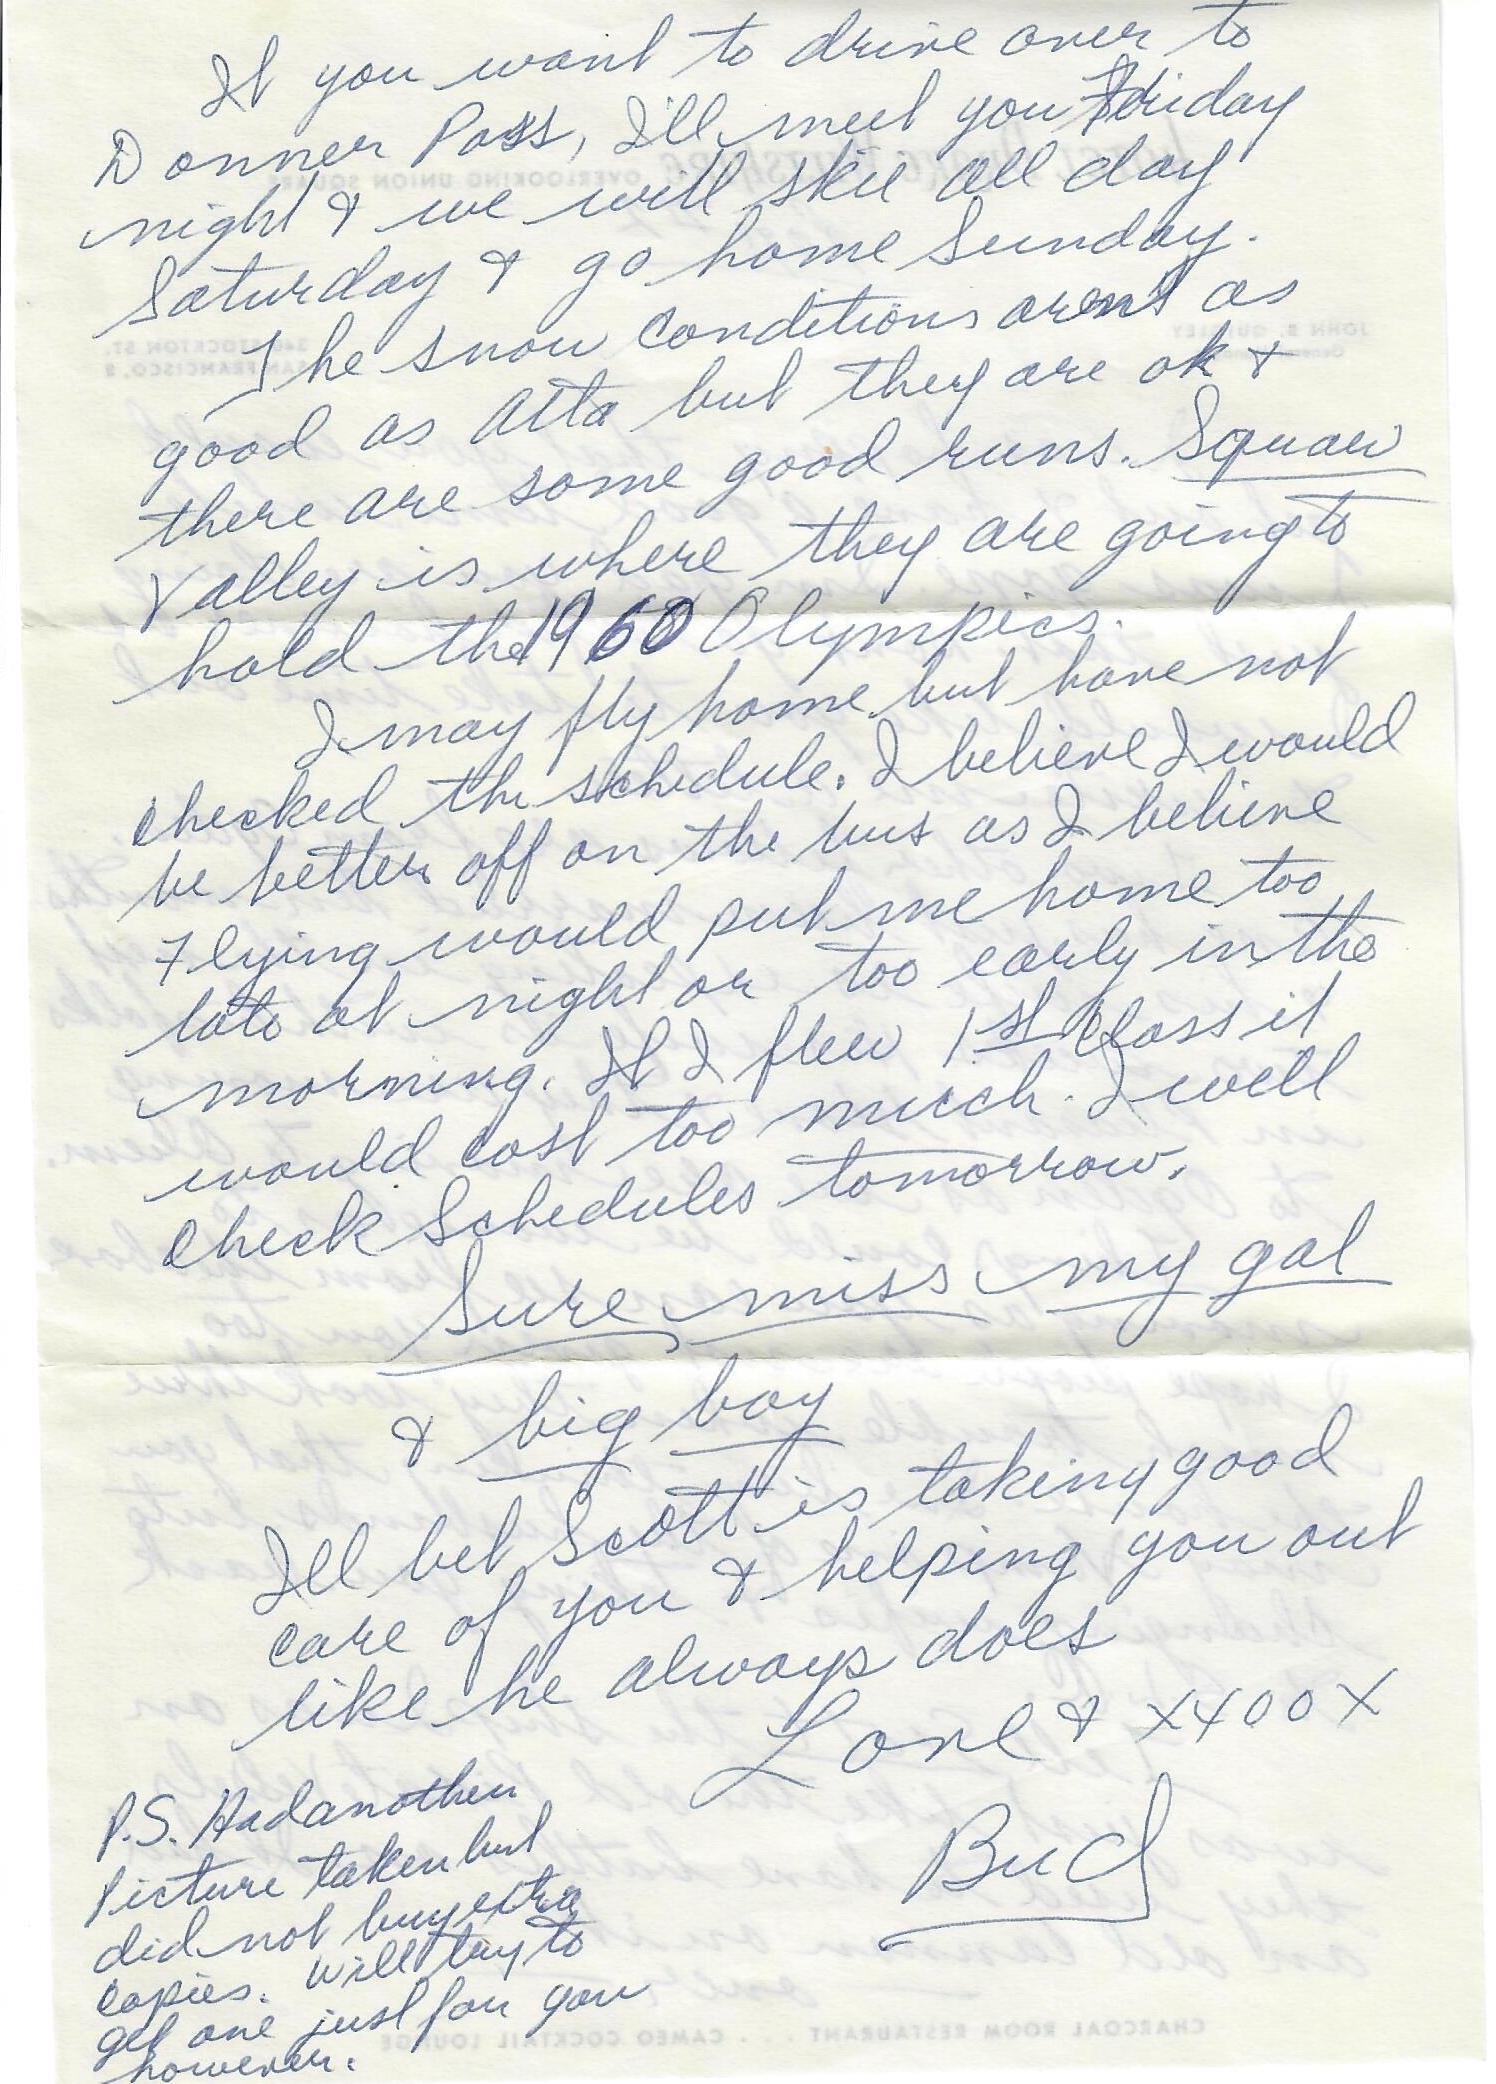 If you want to drive over to
Donner Pass, I'll meet you Friday
night & we will skii all day
Saturday & go home Sunday.
The snow conditions aren't as
good as Alta but they are ok &
there are some good runs. Squaw
Valley is where they are going to
hold the 1960 Olympics.
I may fly home but have not
checked the schedule. I believe I would
be better off on the bus as I believe
Flying would put me home too
late at night or too early in the
morning. If I flew 1st Class it
would cost too much. I will
check Schedules tomorrow.
Sure miss my gal
& big boy
I'll bet Scott is taking good
care of you & helping you out
like he always does
Love & XX00X
Bud
P.S. Had another
Picture taken but
did not buy extra
copies. Will try to
get one just for you
however.
OVERLOOKING UNION SQUARE
340 STOCKTON ST.
SAN FRANCISCO, 8
CHARCOAL ROOM RESTAURANT . . . CAMEO COCKTAIL LOUNGE